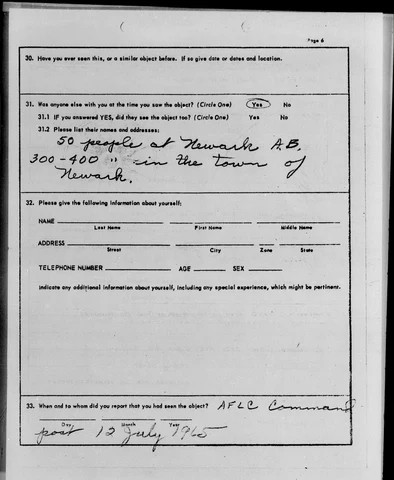 Page 6
30. Have you ever seen this, or a similar object before. If so give date or dates and location.
31. Was anyone else with you at the time you saw the object? (Circle One) Yes No
31.1 IF you answered YES, did they see the object too? (Circle One) Yes No
31.2 Please list their names and addresses:
50 people at Newark A.B.
300-400 " in the town of
Newark.
32. Please give the following information about yourself:
NAME
Last Name First Name Middle Name
ADDRESS
Street City Zone State
TELEPHONE NUMBER AGE SEX
Indicate any additional information about yourself, including any special experience, which might be pertinent.
33. When and to whom did you report that you had seen the object? AFLC Command
Day Month Year
post 12 July 1965